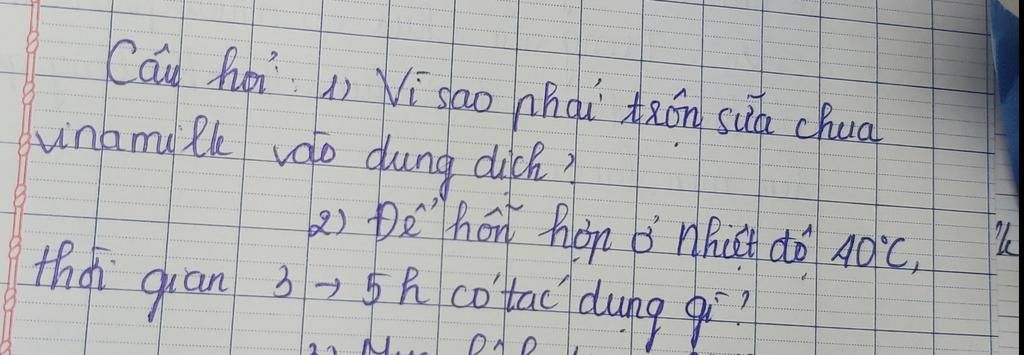 Câu hỏi: 1) Vì sao phải trộn sữa chua
vinamilk vào dung dịch?
2) Để hỗn hợp ở nhiệt độ 40°C,
thời gian 3 → 5h có tác dụng gì?